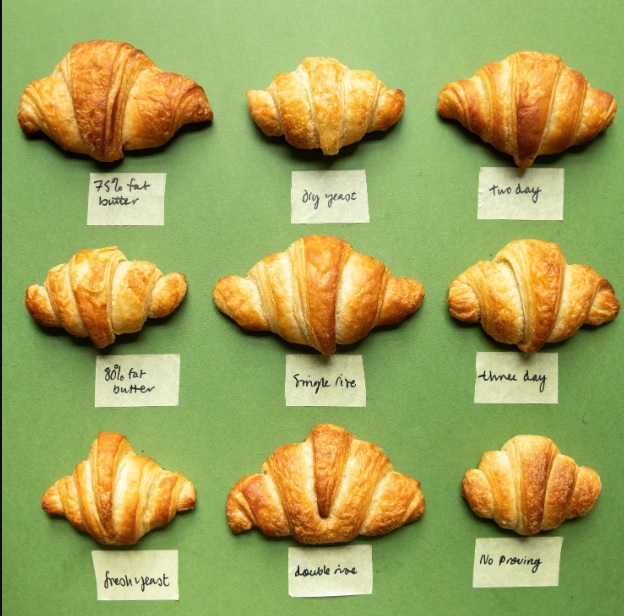 75% fat
butter
dry yeast
two day
80% fat
butter
Single rise
three day
fresh yeast
double rise
No Proving